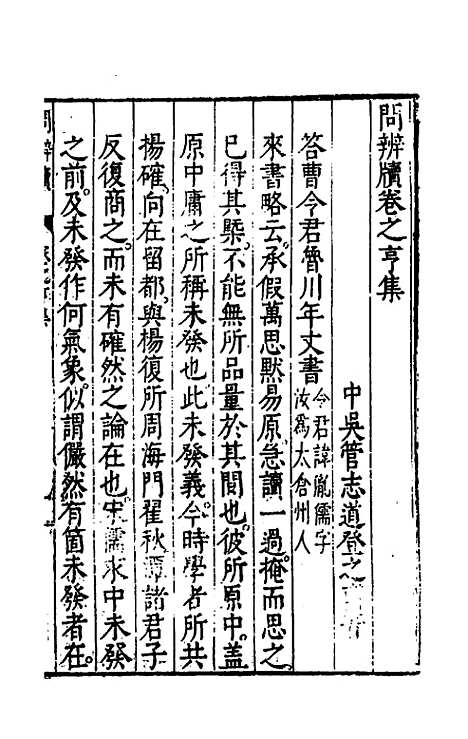 問辨牘卷之亨集
中吳管志道登之
答曹令君魯川年丈書
令君諱胤儒字
汝為太倉州人
來書略云。承假萬思默易原。急讀一過。掩而思之。
已得其槩。不能無所品量於其間也。彼所原中。蓋
原中庸之所稱未發也。此未發義。今時學者所共
揚確。向在留都。與楊復所周海門瞿秋潭諸君子
反復商之。而未有確然之論在也。宋儒求中未發
之前。及未發作何氣象。似謂儼然有箇未發者在。
問辨牘